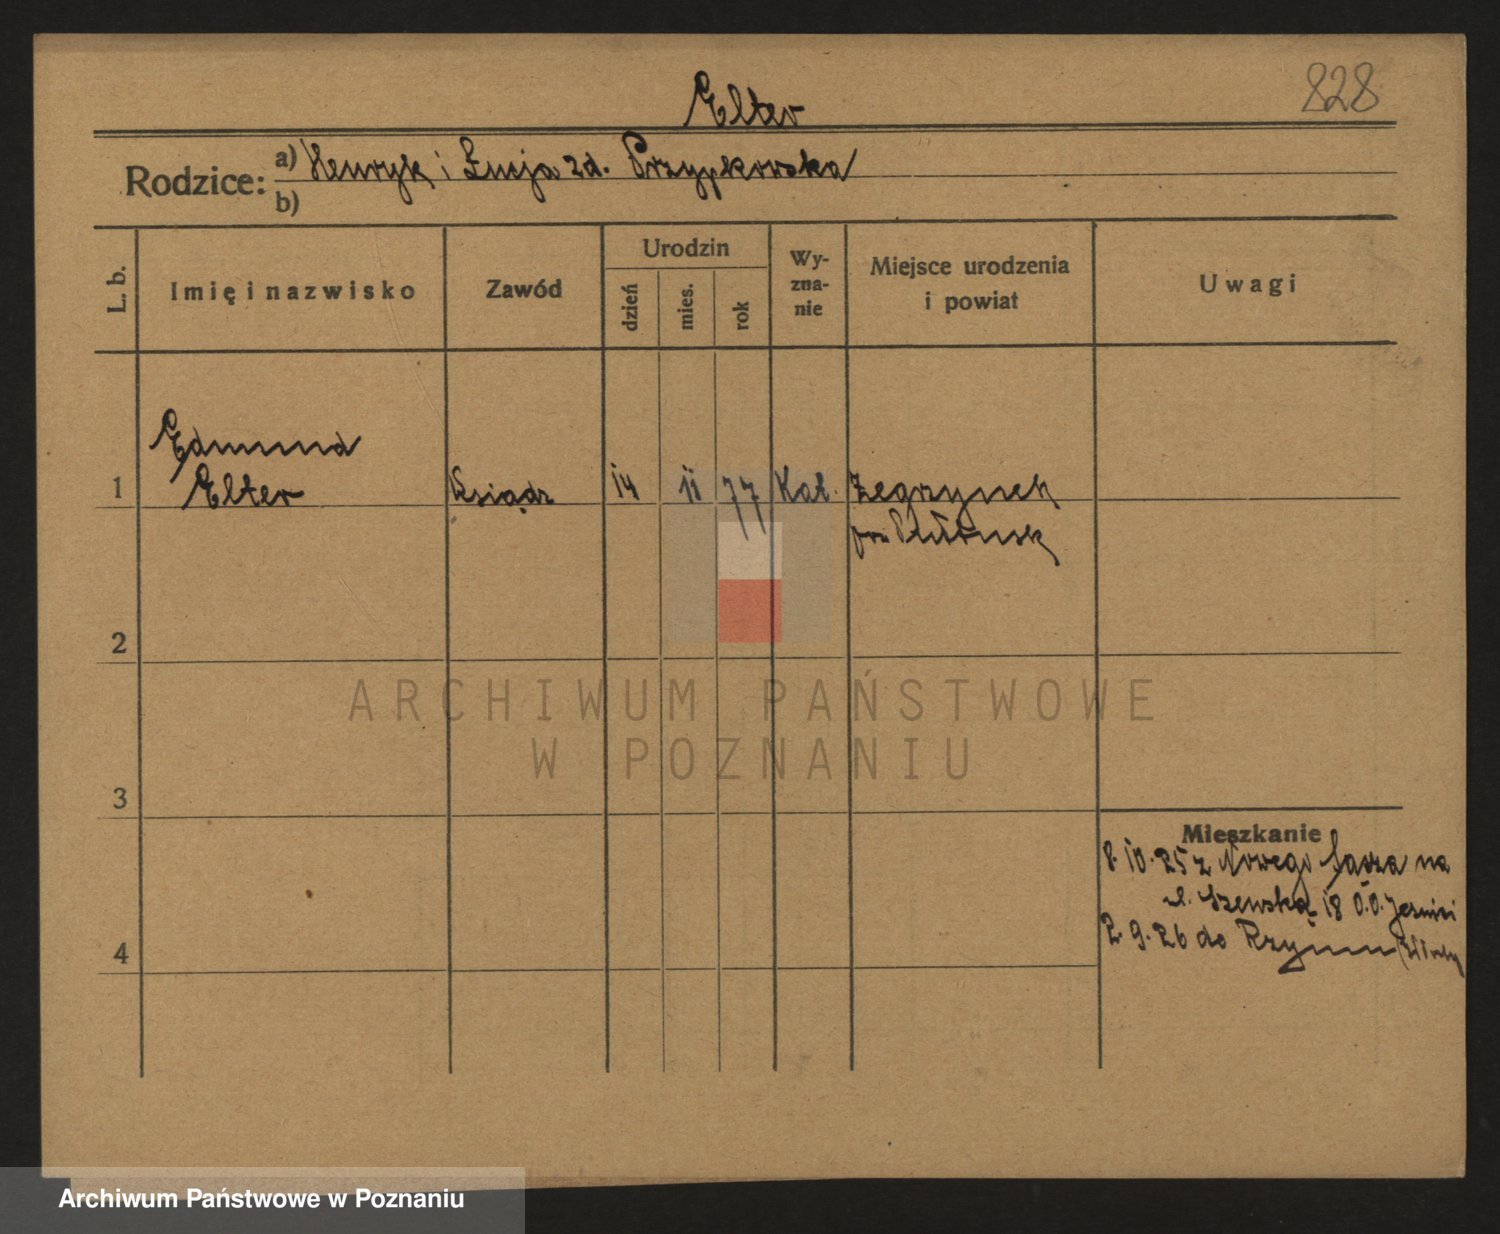 828
Elter
Rodzice: a) Henryk i Łucja zd. Przypkowska
b)
L. b.
Imię i nazwisko
Zawód
Urodzin
dzień
mies.
rok
Wy-
zna-
nie
Miejsce urodzenia
i powiat
Uwagi
Edmund
1 Elter Ksiądz 14 11 77 Kat. Zegrzynek
Pułtusk
2
ARCHIWUM PAŃSTWOWE
W POZNANIU
3
Mieszkanie
8.10.25 z Nowego Sącza na
ul. Szewska 18 O.O. Jezuici
4
2.9.26 do Rzymu (Włochy
Archiwum Państwowe w Poznaniu